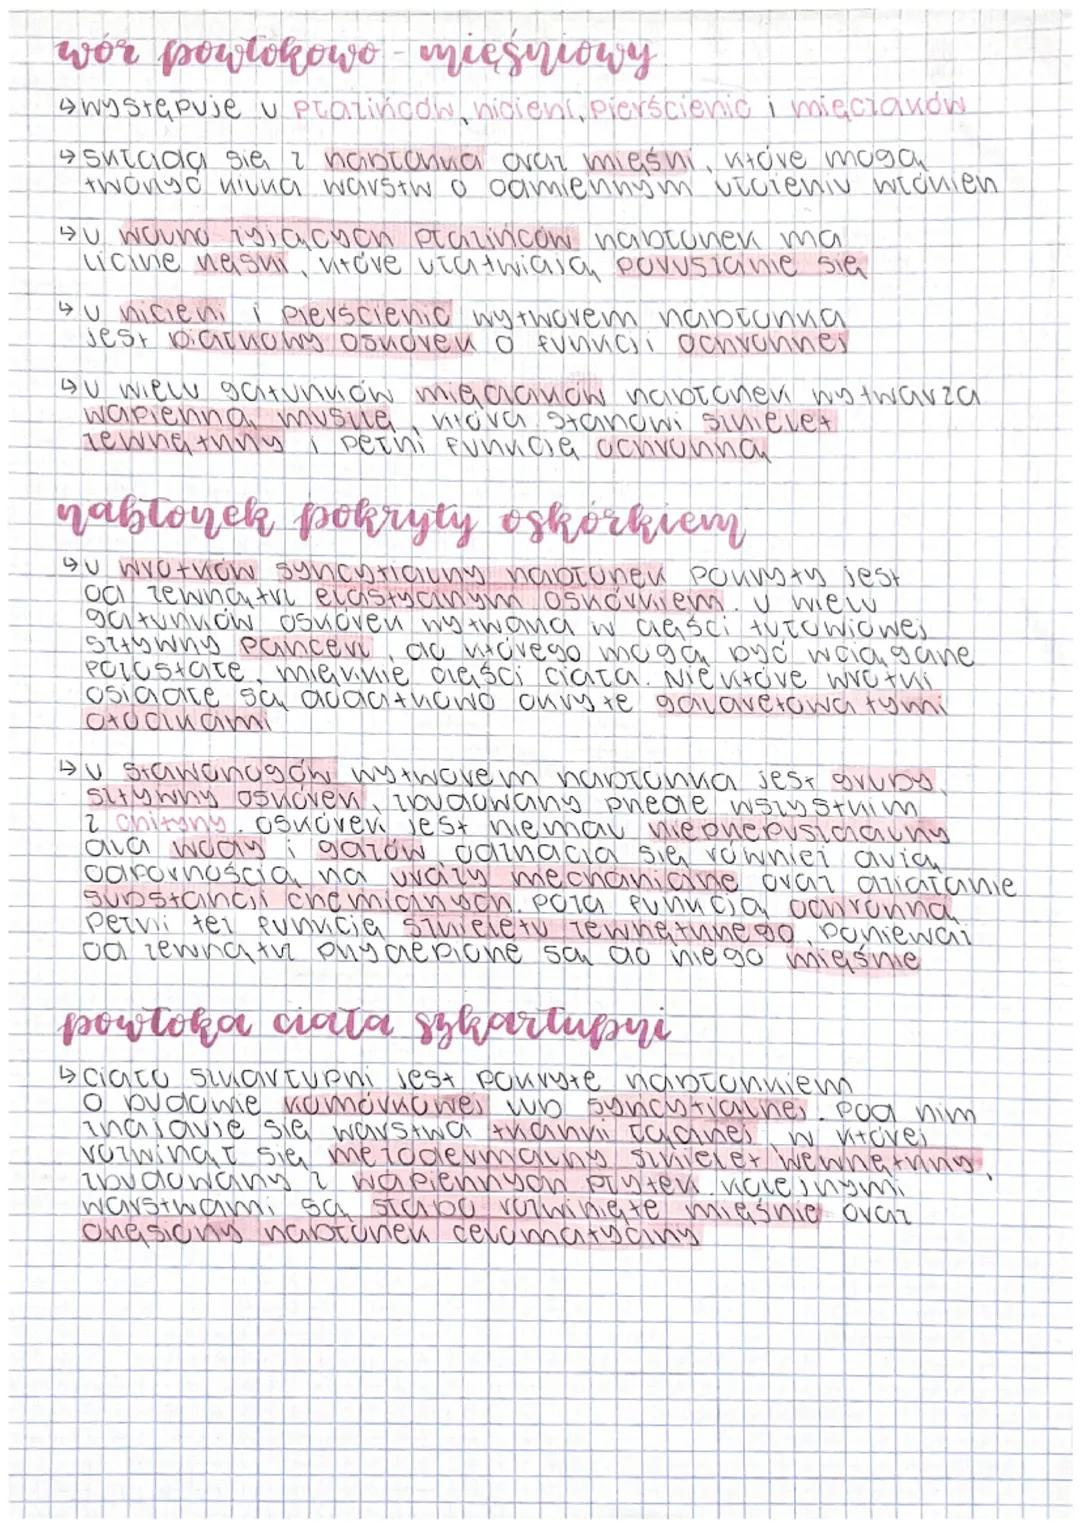 wór powłokowo-mięśniowy
↳ występuje u płazińców, nicieni, pierścienic i mięczaków
↳ składa się z nabłonka oraz mięśni, które mogą
tworzyć kilka warstw o odmiennym ułożeniu włókien
↳ u wolno żyjących płazińców nabłonek ma
liczne rzęski, które ułatwiają poruszanie się
↳ u nicieni i pierścienic wytworem nabłonka
jest białkowy oskórek o funkcji ochronnej
↳ u wielu gatunków mięczaków nabłonek wytwarza
wapienną muszlę, która stanowi szkielet
zewnętrzny i pełni funkcję ochronną
nabłonek pokryty oskórkiem
↳ u wrotków syncytialny nabłonek pokryty jest
od zewnątrz elastycznym oskórkiem. U wielu
gatunków oskórek wytwarza w części tułowiowej
sztywny pancerz, do którego mogą być wciągane
pozostałe, miękkie części ciała. Niektóre wrotki
osiadłe są dodatkowo okryte galaretowatymi
otoczkami
↳ u stawonogów wytworem nabłonka jest gruby,
sztywny oskórek, zbudowany przede wszystkim
z chityny. Oskórek jest niemal nieprzepuszczalny
dla wody i gazów, odznacza się również dużą
odpornością na urazy mechaniczne oraz działanie
substancji chemicznych. Poza funkcją ochronną
pełni też funkcję szkieletu zewnętrznego, ponieważ
od zewnątrz przyczepione są do niego mięśnie
powłoka ciała szkarłupni
↳ Ciało szkarłupni jest pokryte nabłonkiem
o budowie komórkowej lub syncytialnej. Pod nim
znajduje się warstwa tkanki łącznej, w której
rozwinął się mezodermalny szkielet wewnętrzny,
zbudowany z wapiennych płytek. Kolejnymi
warstwami są słabo rozwinięte mięśnie oraz
orzęsiony nabłonek celomatyczny